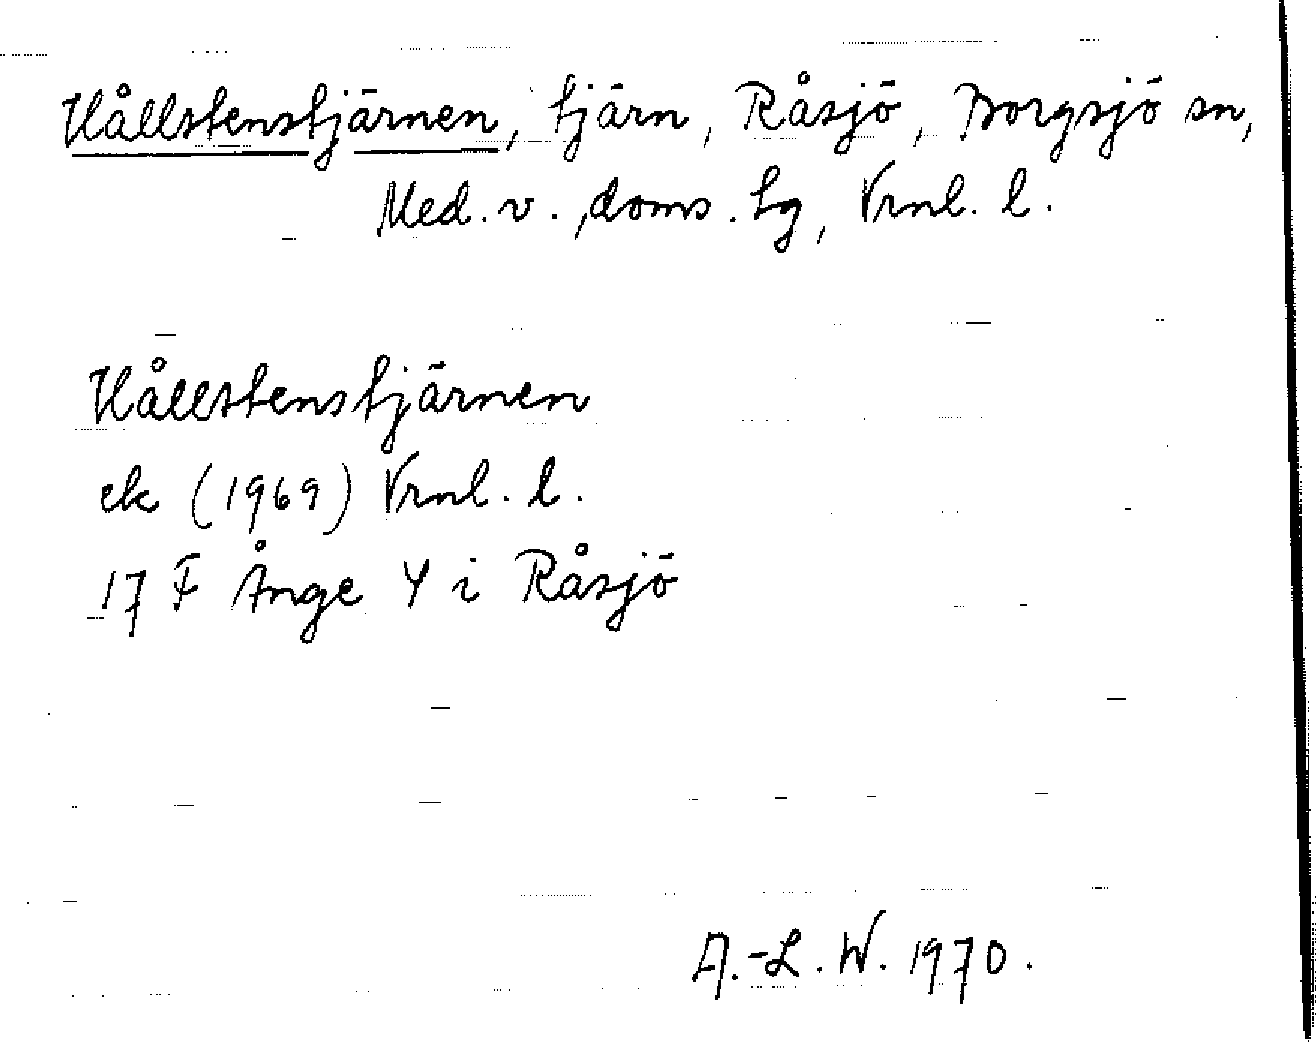 Hållstenstjärnen, tjärn, Råsjö, Borgsjö sn,
Med. v. doms. tg, Vrnl. l.
Hållstenstjärnen
ek (1969) Vrnl. l.
17 F Ånge Y i Råsjö
A.-L. W. 1970.